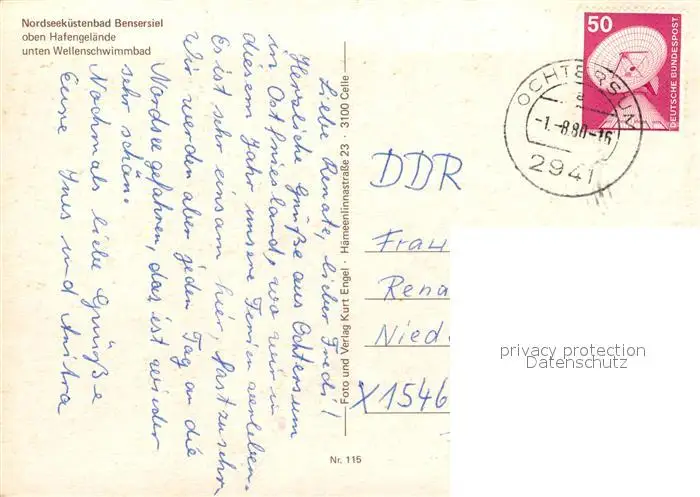 Nordseeküstenbad Bensersiel
oben Hafengelände
unten Wellenschwimmbad
Liebe Renate, lieber Fredi!
Herzliche Grüße aus Ochtersum
in Ostfriesland, wo wir in
diesem Jahr unsere Ferien verleben.
Es ist sehr einsam hier, fast zu sehr.
Wir werden aber jeden Tag an die
Nordsee gefahren, das ist wieder
sehr schön.
Nochmals liebe Grüße
Eure Ines und Anitra
Foto und Verlag Kurt Engel · Hämeenlinnastraße 23 · 3100 Celle
Nr. 115
50
DEUTSCHE BUNDESPOST
OCHTERSUM
a
-1.-8.80-16
2941
DDR
Frau
Rena
Nied
X1546
privacy protection
Datenschutz